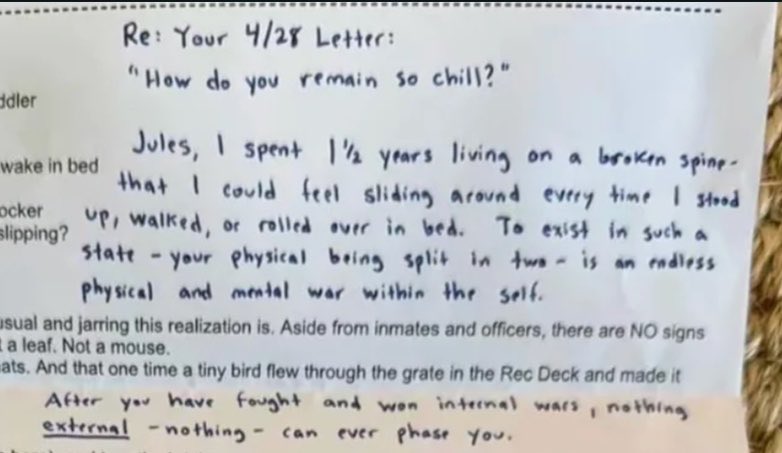 Re: Your 4/28 Letter:
"How do you remain so chill?"
ddler
Jules, I spent 1½ years living on a broken spine-
wake in bed
that I could feel sliding around every time I stood
ocker
up, walked, or rolled over in bed. To exist in such a
slipping?
state - your physical being split in two - is an endless
physical and mental war within the self.
usual and jarring this realization is. Aside from inmates and officers, there are NO signs
t a leaf. Not a mouse.
ats. And that one time a tiny bird flew through the grate in the Rec Deck and made it
After you have fought and won internal wars, nothing
external - nothing - can ever phase you.